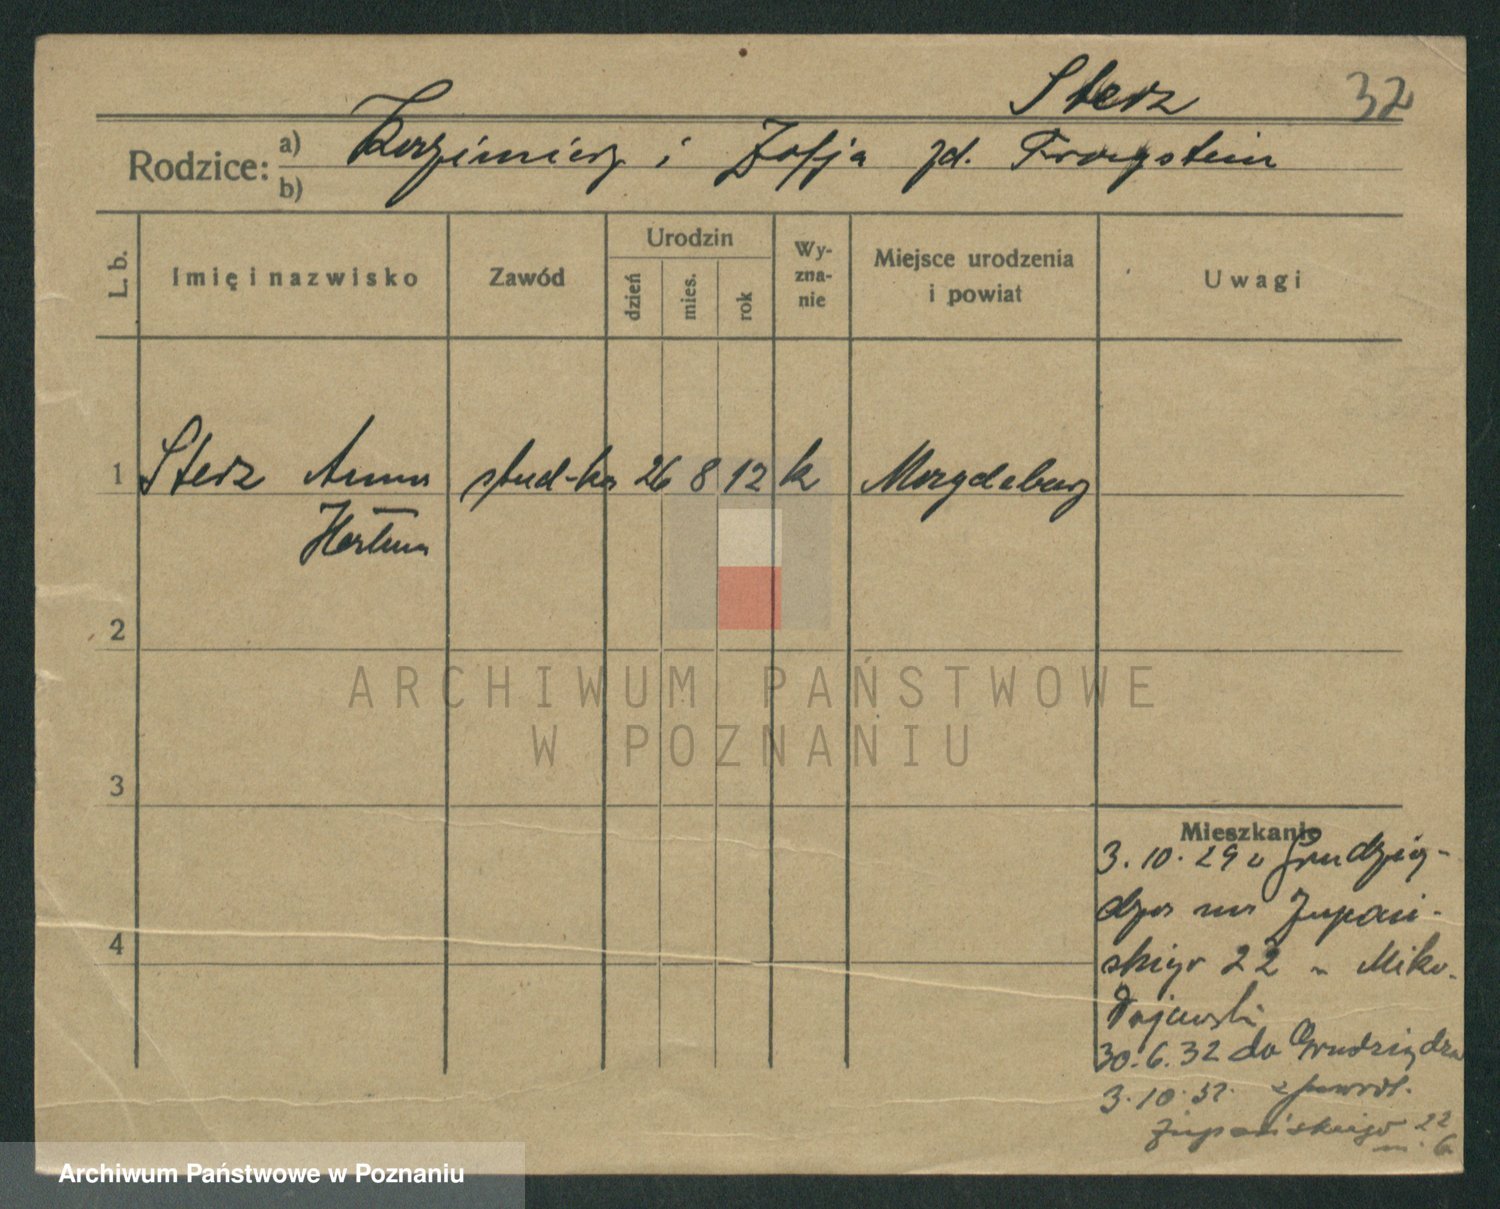 Sterz 32
Rodzice: a) b) Kazimierz i Zofja zd. Fragstein
L. b. Imię i nazwisko Zawód Urodzin dzień mies. rok Wy-zna-nie Miejsce urodzenia i powiat Uwagi
1 Sterz Anna stud-ka 26 8 12 k Magdeburg
2
3
4
Mieszkanie
3.10.29 z Grudzią-
dza na Żupań-
skiego 22 Miko-
łajewski
30.6.32 do Grudziądza
3.10.32. z powrot.
Żupańskiego 22
m. 6
ARCHIWUM PAŃSTWOWE
W POZNANIU
Archiwum Państwowe w Poznaniu